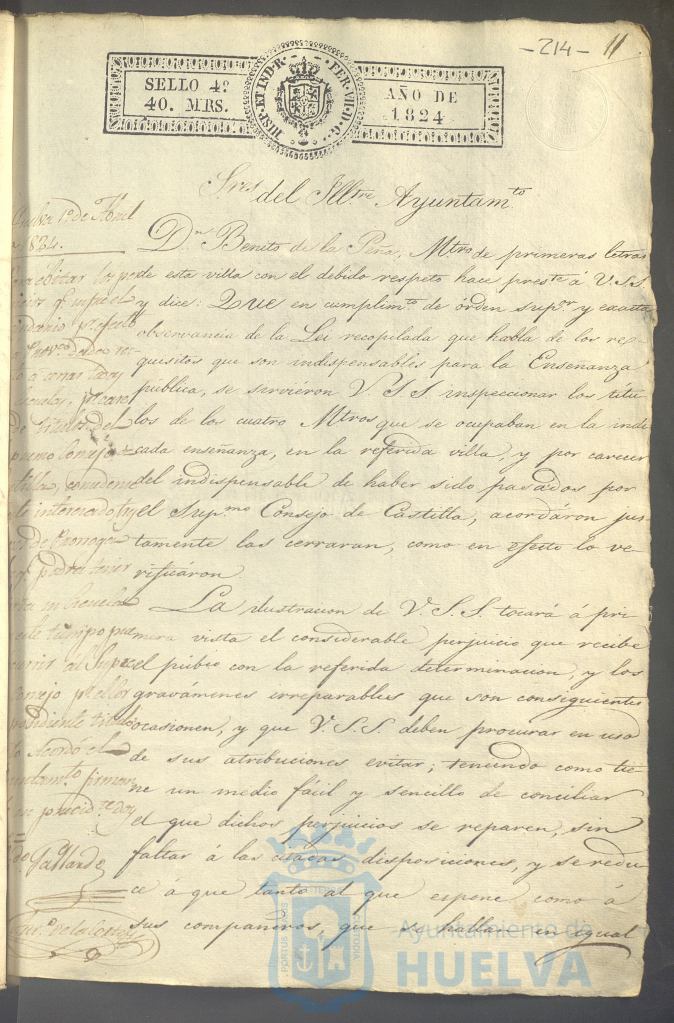 -214- 11
SELLO 4º
40. MRS.
HISP. ET IND. R. FER. VII. D. G.
AÑO DE
1824
Sres del Illtre Ayuntamto
Dn Benito de la Peña, Mtro de primeras letras
de esta villa con el debido respeto hace preste á V.S.S.
y dice: Que en cumplimto de órden supor y exacta
observancia de la Lei recopilada que habla de los re-
quisitos que son indispensables para la Enseñanza
publica, se sirviéron V.S.S. inspeccionar los títu-
los de los cuatro Mtros que se ocupaban en la indi-
cada enseñanza, en la referida villa, y por carecer
del indispensable de haber sido pasados por
el Supmo Consejo de Castilla, acordáron jus-
tamente las cerraran, como en efecto lo ve-
rificáron.
La ilustracion de V.S.S. tocará á pri-
mera vista el considerable perjuicio que recibe
el público con la referida determinacion, y los
gravámenes irreparables que son consiguientes
ocasionen, y que V.S.S. deben procurar en uso
de sus atribuciones evitar; teniendo como tie-
ne un medio fácil y sencillo de conciliar
el que dichos perjuicios se reparen, sin
faltar á las citadas disposiciones, y se redu-
ce á que tanto al que espone como á
sus compañeros, que se hallan en igual
1º de Abril
titulos del
Consejo
Castilla
Escuela
tiempo
Consejo
Acordó el
firman
Gallardo
PORTUS MARIS CUSTODIA
Ayuntamiento de
HUELVA